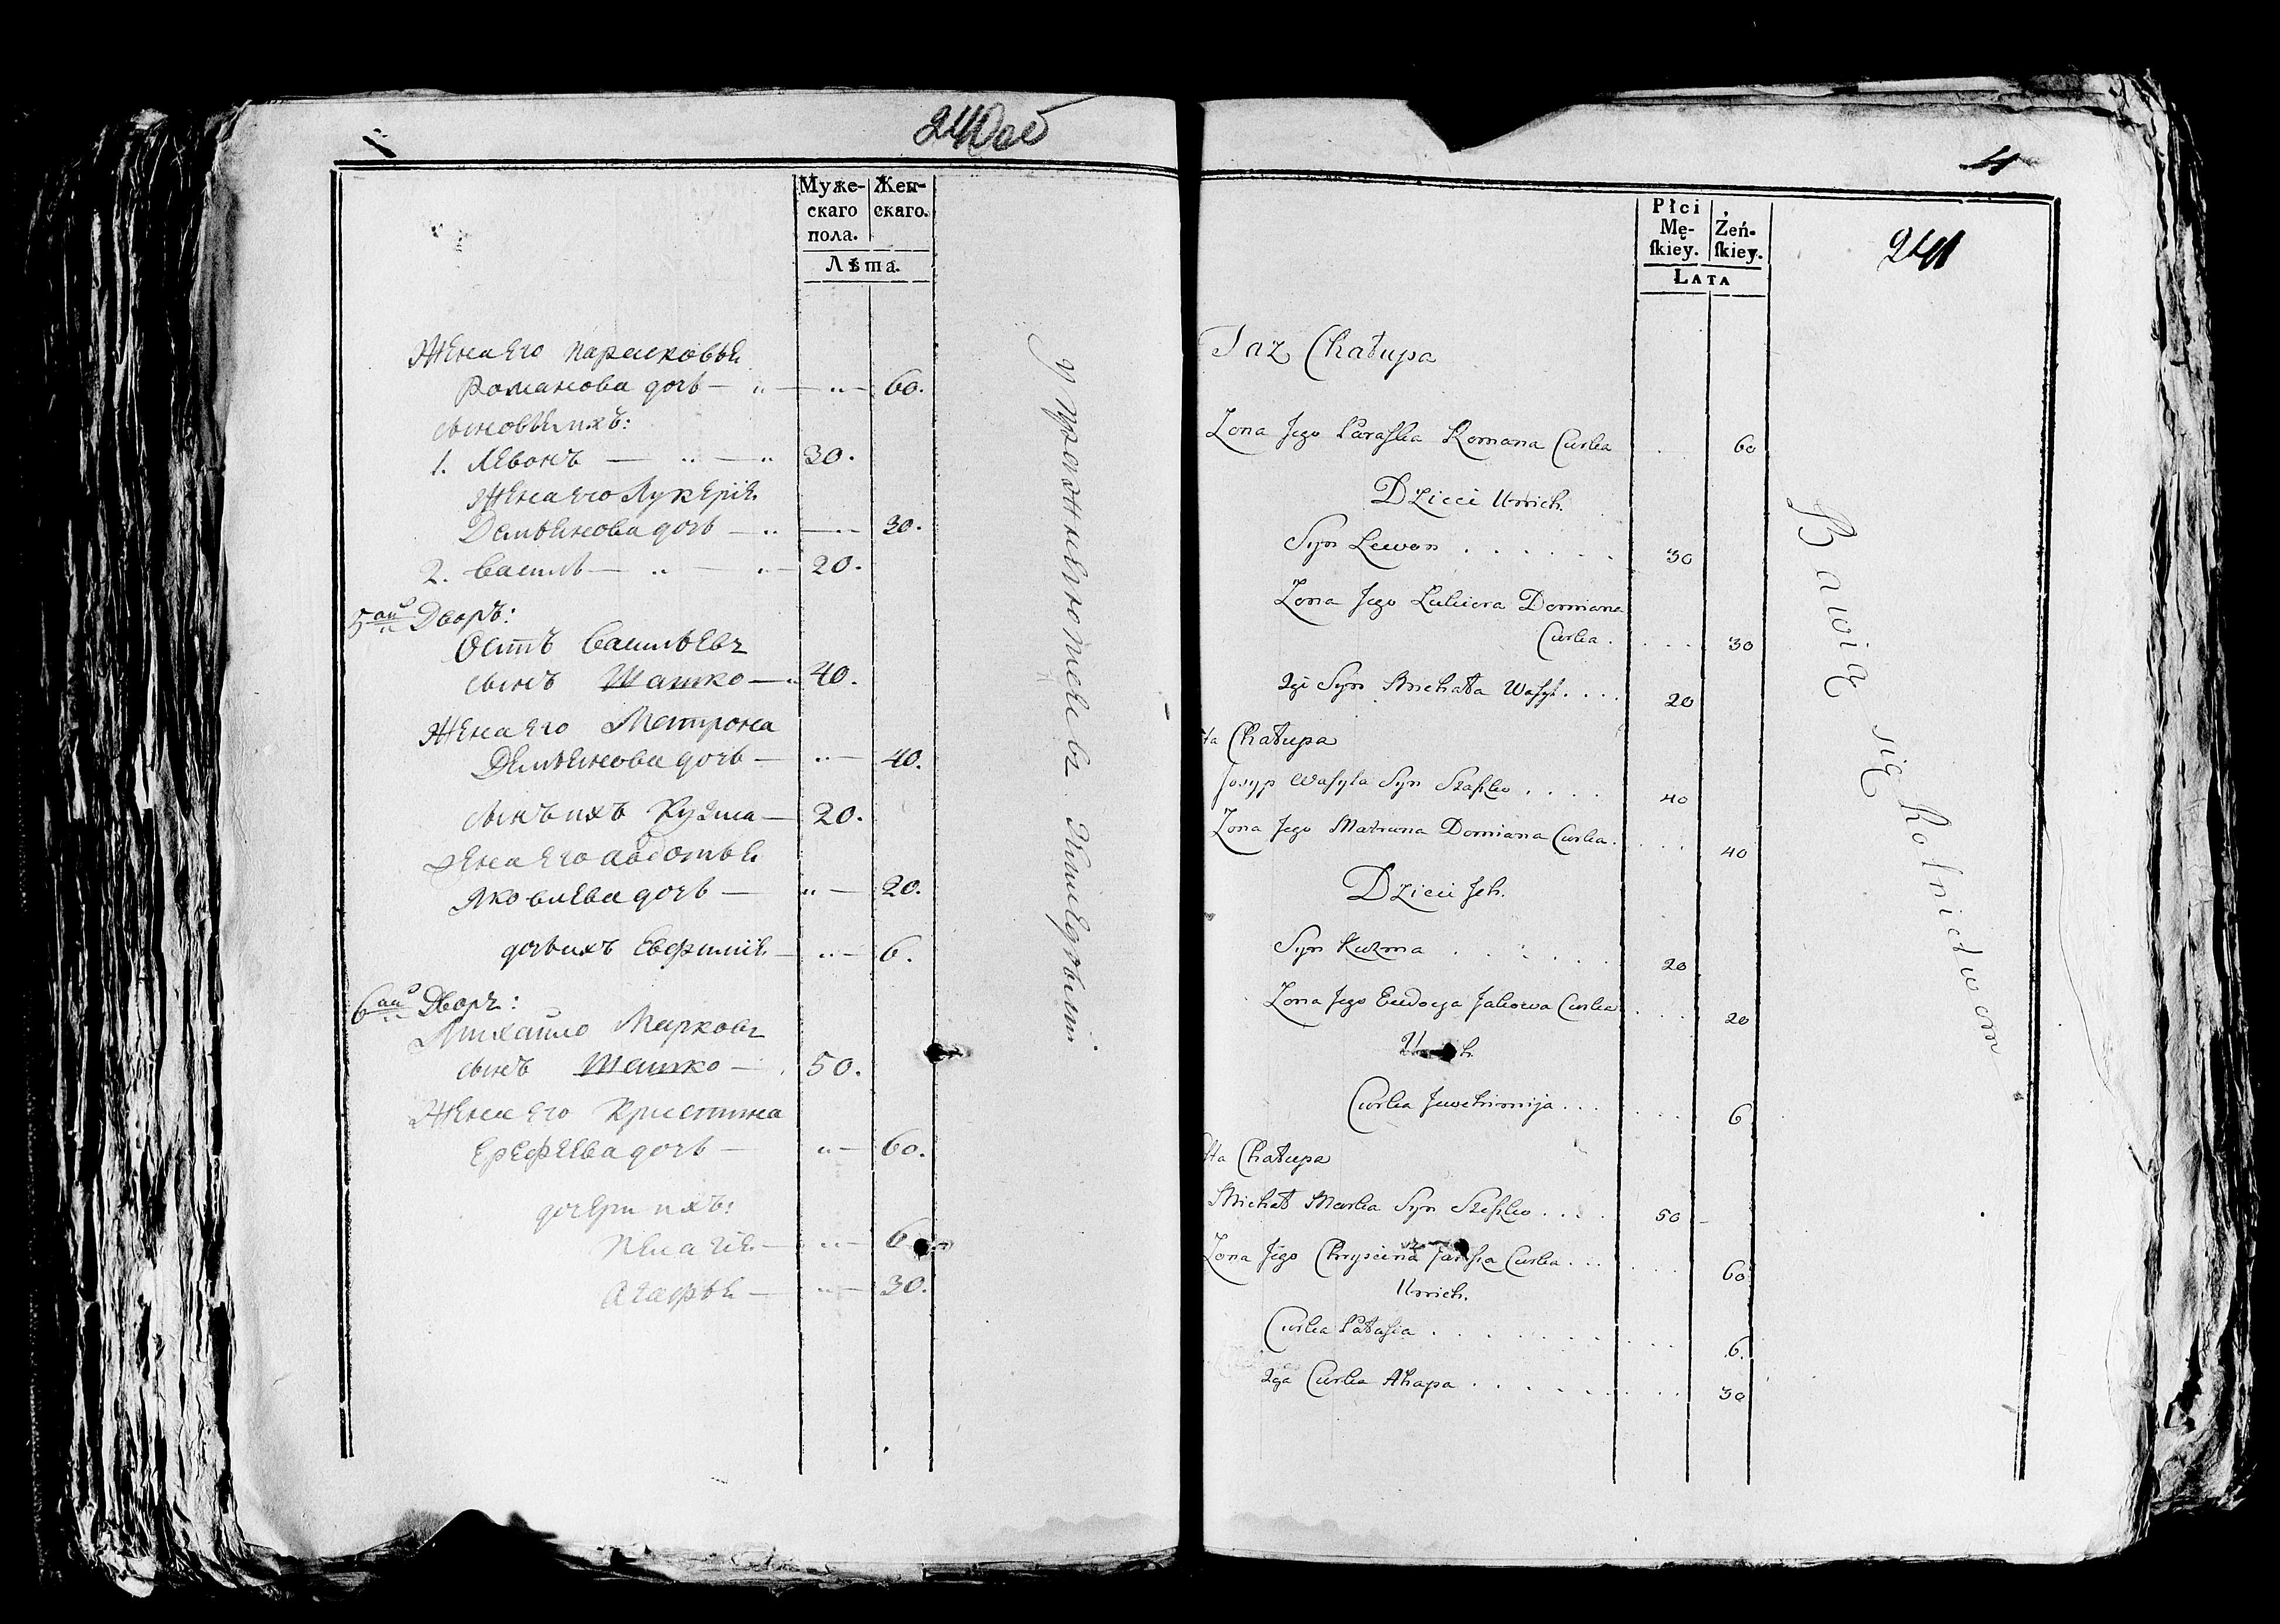 240 об
Муже-
скаго
пола.
Жен-
скаго.
Лѣта.
Жена его Парасковья
Романова дочь — " — " — 60.
сыновья ихъ:
1. Левонъ — " — " 30.
Жена его Лукерiя
Демьянова дочь — " — " 30.
2. Василь — " — " — 20.
5ый Дворъ:
Остъ Васильевъ
сынъ Шашко — " 40.
Жена его Матрона
Демьянова дочь — " — 40.
сынъ ихъ Кузма — 20.
жена его Авдотья
Яковлева дочь — " — 20.
дочь ихъ Евфимiя — " — 6.
6ый Дворъ:
Михайло Марковъ
сынъ Шашко — 50.
Жена его Кристина
Ерефеева дочь — " — 60.
дочери ихъ:
Пелагiя — " — 6
Агафья — " — 30.
Упражняются въ Земледѣлiи
4
241
Płci
Mę-
ſkiey.
Żeń-
ſkiey.
LATA
Taz Chałupa
Zona Jego Paraſka Romana Curka 60
Dzieci Unich.
Syn Lewon . . . . . . 30
Zona Jego Lukiera Domiana
Curka . . . . 30
2gi Syn Michała Waſyl . . . . 20
ta Chałupa
Josyp Waſyla Syn Szaſzko . . . . 40
Zona Jego Matruna Domiana Curka . . . . 40
Dzieci Jch.
Syn Kuzma . . . . . . 20
Zona Jego Eudocya Jakowa Curka . . . 20
Curka Jewchimija . . . . . . 6
ta Chałupa
Michał Marka Syn Szaſzko . . . . 50
Zona Jego Chryscina Curka . . . . . 60
Unich.
Curka Pałaſia . . . . . . . . . . 6.
2ga Curka Ahapa . . . . . . . . . 30
Bawią się Rolnictwem